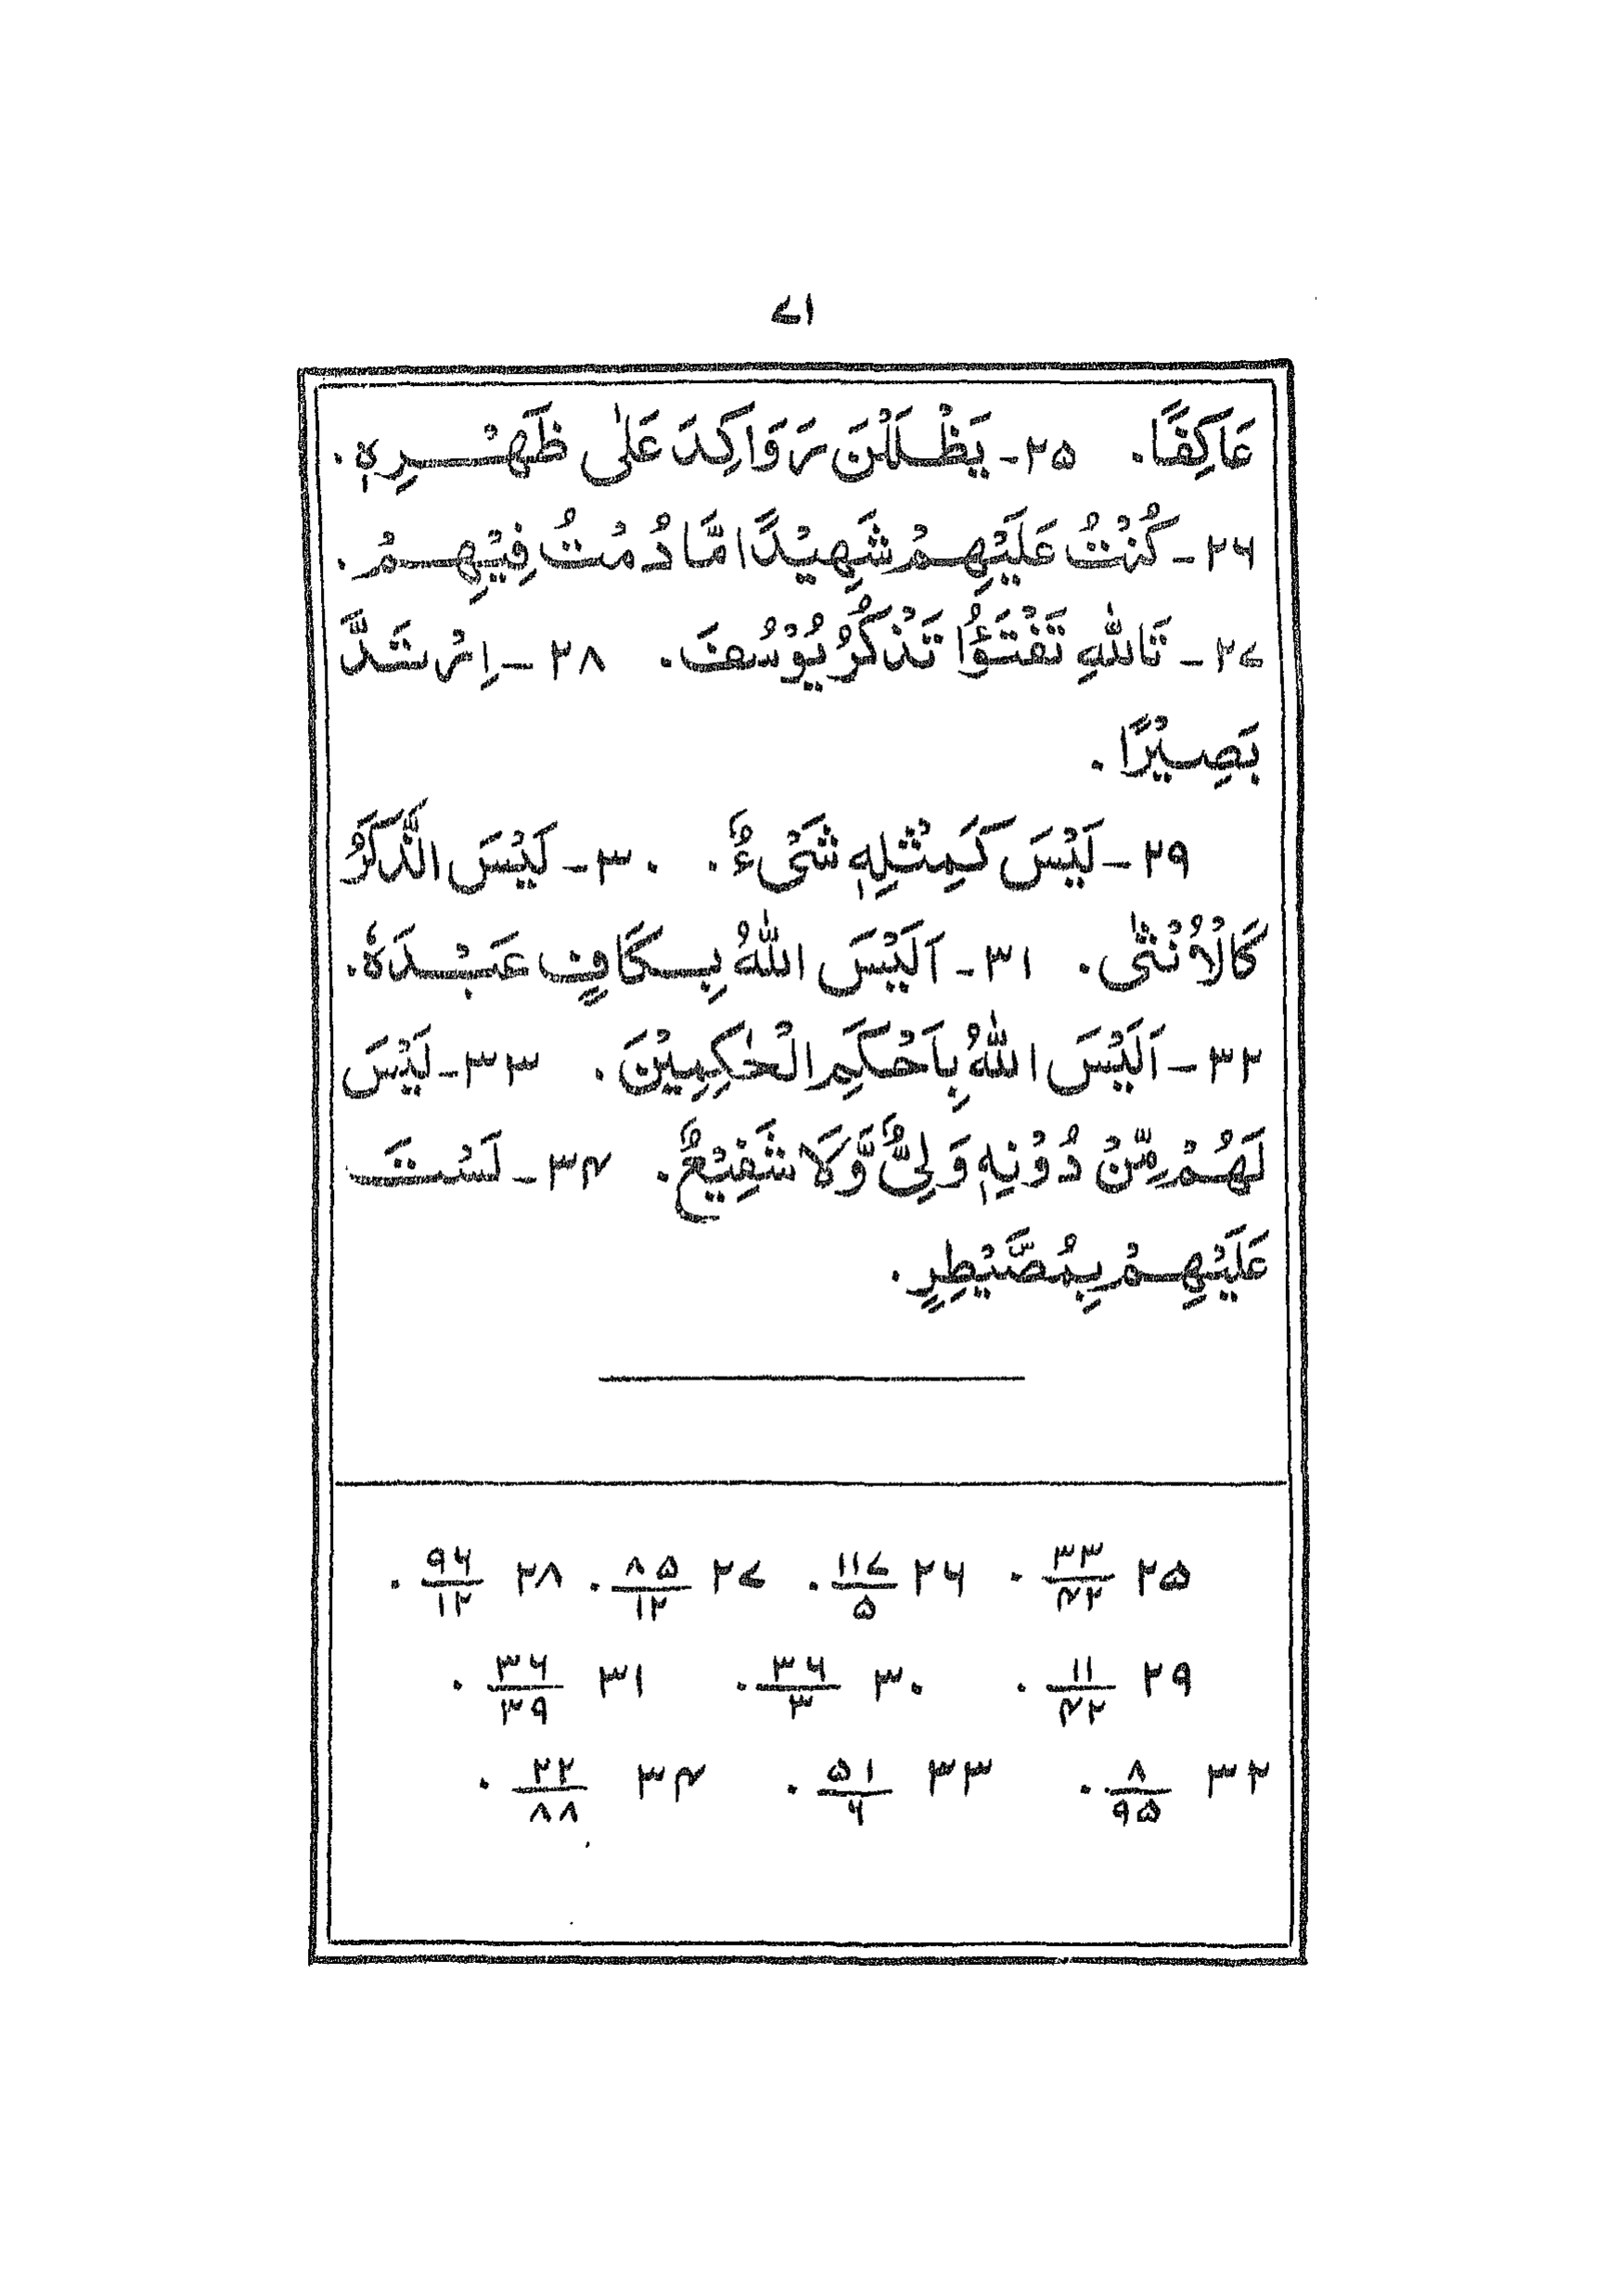 ۷۱
عَاكِفًا۔ ۲۵۔ يَظْلَلْنَ رَوَاكِدَ عَلٰى ظَهْرِهٖ۔
۲۶۔ كُنْتُ عَلَيْهِمْ شَهِيْدًا مَّا دُمْتُ فِيْهِمْ۔
۲۷۔ تَاللّٰهِ تَفْتَؤُا تَذْكُرُ يُوْسُفَ۔ ۲۸۔ اِرْتَدَّ
بَصِيْرًا۔
۲۹۔ لَيْسَ كَمِثْلِهٖ شَىْءٌ۔ ۳۰۔ لَيْسَ الذَّكَرُ
كَالْاُنْثٰى۔ ۳۱۔ اَلَيْسَ اللّٰهُ بِكَافٍ عَبْدَهٗ۔
۳۲۔ اَلَيْسَ اللّٰهُ بِاَحْكَمِ الْحٰكِمِيْنَ۔ ۳۳۔ لَيْسَ
لَهُمْ مِّنْ دُوْنِهٖ وَلِىٌّ وَّلَا شَفِيْعٌ۔ ۳۴۔ لَسْتَ
عَلَيْهِمْ بِمُصَّيْطِرٍ۔
۲۵ ۳۳/۴۲۔ ۲۶ ۱۱۷/۵۔ ۲۷ ۸۵/۱۲۔ ۲۸ ۹۶/۱۲۔
۲۹ ۱۱/۴۲۔ ۳۰ ۳۶/۳۔ ۳۱ ۳۶/۳۹۔
۳۲ ۸/۹۵۔ ۳۳ ۵۱/۶۔ ۳۴ ۲۲/۸۸۔